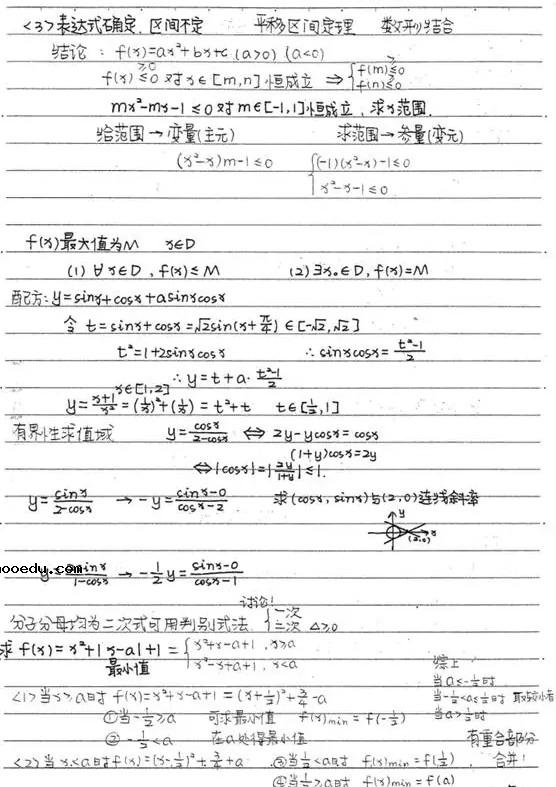 <3>表达式确定，区间不定 平移区间定理 数形结合
结论：f(x)=ax²+bx+c (a>0) (a<0)
f(x) ≥0 ≤0 对x∈[m,n]恒成立 ⇒ { f(m)≤0 ≥ f(n)≤0
mx²-mx-1≤0对m∈[-1,1]恒成立，求x范围.
给范围→变量(主元) 求范围→参量(变元)
(x²-x)m-1≤0 { (-1)(x²-x)-1≤0
x²-x-1≤0
f(x)最大值为M x∈D
(1) ∀x∈D, f(x)≤M (2) ∃x₀∈D, f(x)=M
配方: y=sinx+cosx+asinxcosx
令 t=sinx+cosx=√2sin(x+π/4)∈[-√2,√2]
t²=1+2sinxcosx ∴sinxcosx=(t²-1)/2
∴y=t+a·(t²-1)/2
x∈[1,2]
y=(x+1)/x²=(1/x)²+(1/x)=t²+t t∈[1/2,1]
有界性求值域 y=cosx/(2-cosx) ⇔ 2y-ycosx=cosx
(1+y)cosx=2y
⇔|cosx|=|2y/(1+y)|≤1.
y=sinx/(2-cosx) → -y=(sinx-0)/(cosx-2) 求(cosx, sinx)与(2,0)连线斜率
y x (2,0)
ooedu.com sinx/(1-cosx) → -1/2 y=(sinx-0)/(cosx-1)
讨论!
分子分母均为二次式可用判别式法 { 一次 二次 △≥0
求 f(x)=x²+|x-a|+1= { x²+x-a+1, x≥a
最小值 x²-x+a+1, x<a
综上
<1>当x≥a时 f(x)=x²+x-a+1=(x+1/2)²+3/4-a
当a≤-1/2时
当-1/2<a≤1/2时 取较小者
①当-1/2≥a 可求最小值 f(x)min=f(-1/2)
当a>1/2时
②-1/2<a 在a处得最小值
有重合部分
<2>当x<a时f(x)=(x-1/2)²+3/4+a ③当1/2<a时 f(x)min=f(1/2), 合并!
④当1/2≥a时 f(x)min=f(a)